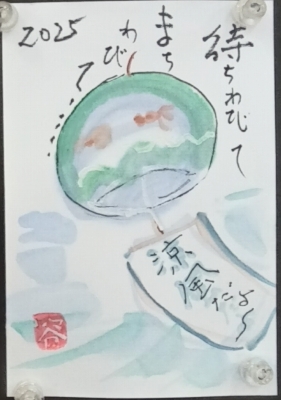 待ちわびて
まち
わび
て……
2025
涼
風
だよ〜